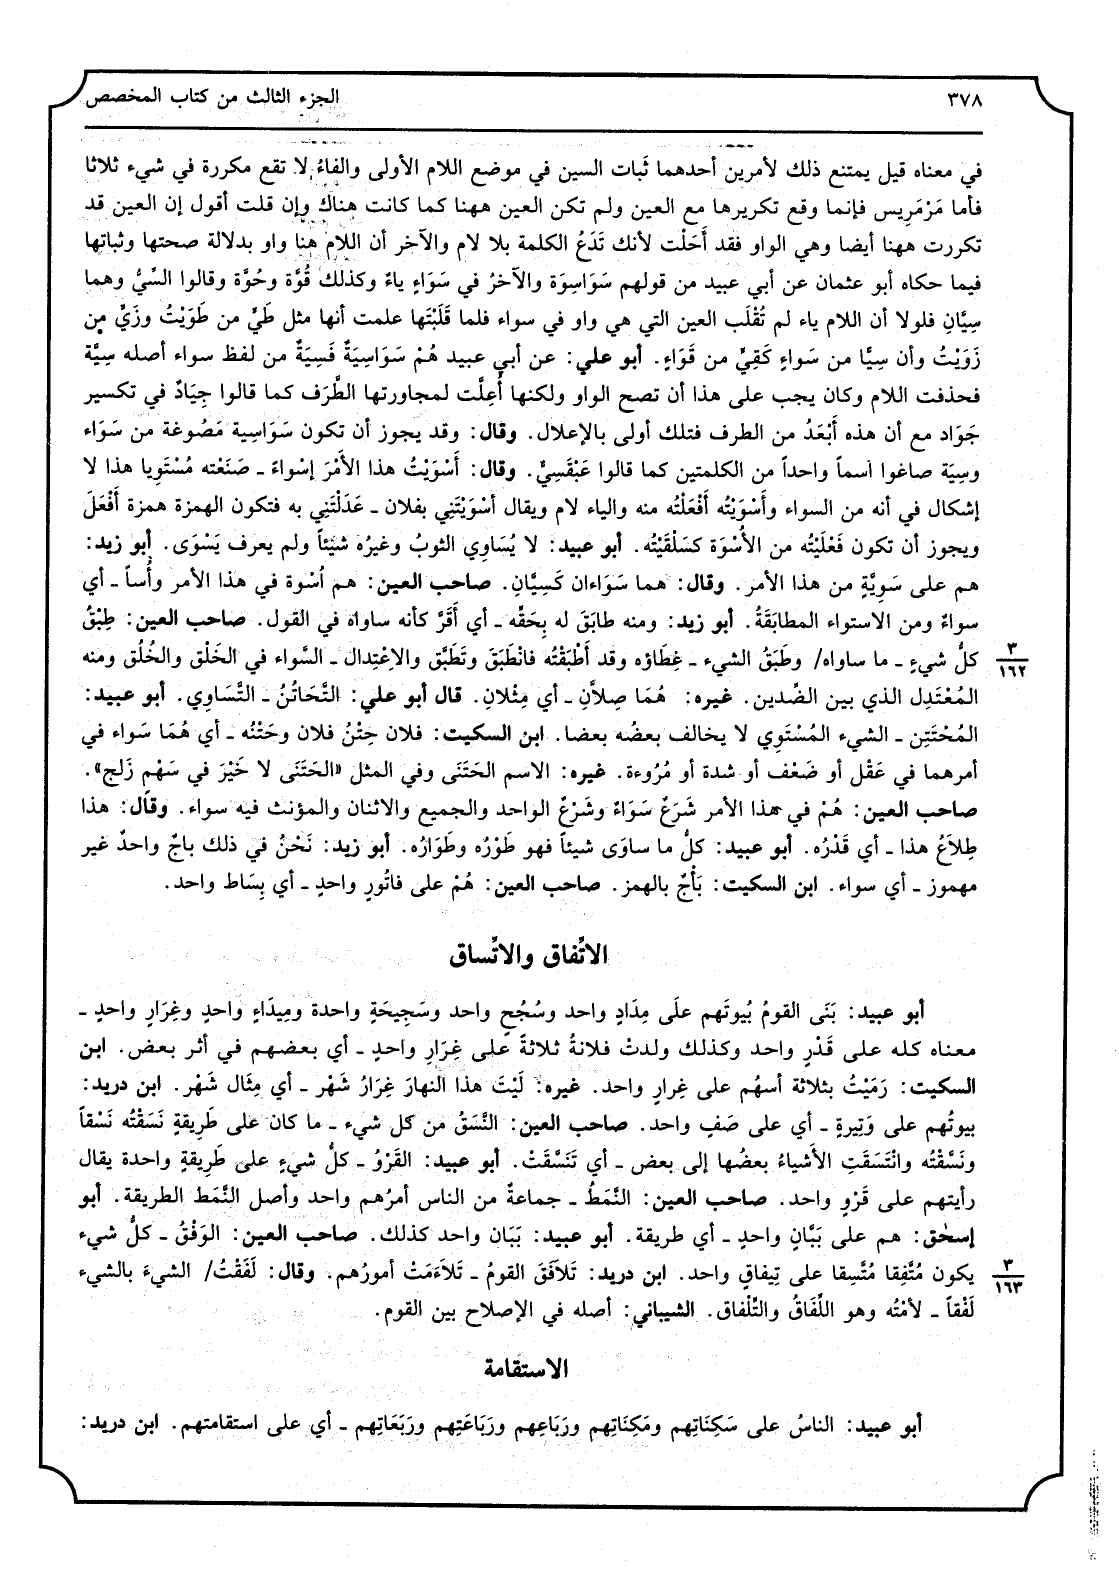 ٣٧٨ الجزء الثالث من كتاب المخصص
في معناه قيل يمتنع ذلك لأمرين أحدهما ثَبات السين في موضع اللام الأولى والفاءُ لا تقع مكررة في شيء ثلاثا
فأما مَرْمَرِيس فإنما وقع تكريرها مع العين ولم تكن العين ههنا كما كانت هناك وإن قلت أقول إن العين قد
تكررت ههنا أيضا وهي الواو فقد أَحَلْت لأنك تَدَعُ الكلمة بلا لام والآخر أن اللام هنا واو بدلالة صحتها وثباتها
فيما حكاه أبو عثمان عن أبي عبيد من قولهم سَوَاسِوَة والآخرُ في سَوَاءٍ ياءٌ وكذلك قُوَّة وحُوَّة وقالوا السِّيُّ وهما
سِيَّانِ فلولا أن اللام ياء لم تُقْلَب العين التي هي واو في سواء فلما قَلَبْتَها علمت أنها مثل طَيٍّ من طَوَيْتُ وزَيٍّ مِن
زَوَيْتُ وأن سِيًّا من سَواءٍ كَقِيٍّ من قَوَاءٍ. أبو علي: عن أبي عبيد هُمْ سَوَاسِيَةٌ فَسِيَةٌ من لفظ سواء أصله سِيَّة
فحذفت اللام وكان يجب على هذا أن تصح الواو ولكنها أُعِلَّت لمجاورتها الطَّرَف كما قالوا جِيَادٌ في تكسير
جَوَاد مع أن هذه أَبْعَدُ من الطرف فتلك أولى بالإعلال. وقال: وقد يجوز أن تكون سَوَاسِية مَصُوغة من سَوَاء
وسِيَة صاغوا اسماً واحداً من الكلمتين كما قالوا عَبْقَسِيٌّ. وقال: أَسْوَيْتُ هذا الأَمْرَ إسْواءً ـ صَنَعْته مُسْتَوِيا هذا لا
إشكال في أنه من السواء وأَسْوَيْتُه أَفْعَلْتُه منه والياء لام ويقال أسْوَيْتَنِي بفلان ـ عَدَلْتَنِي به فتكون الهمزة همزة أَفْعَلَ
ويجوز أن تكون فَعْلَيْتُه من الأُسْوَة كَسَلْقَيْتُه. أبو عبيد: لا يُسَاوِي الثوبُ وغيرُه شَيْئاً ولم يعرف يَسْوَى. أبو زيد:
هم على سَوِيَّةٍ من هذا الأمر. وقال: هما سَوَاءان كَسِيَّانِ. صاحب العين: هم أُسْوة في هذا الأمر وأُساً ـ أي
سواءً ومن الاستواء المطابَقَةُ. أبو زيد: ومنه طابَقَ له بِحَقِّه ـ أي أَقَرَّ كأنه ساواه في القول. صاحب العين: طِبْقُ
كلُّ شيءٍ ـ ما ساواه/ وطَبَقُ الشيء ـ غِطَاؤه وقد أَطْبَقْتُه فانْطَبَقَ وتَطَبَّق والاِعْتِدال ـ السَّواء في الخَلْق والخُلُق ومنه
٣
١٦٢
المُعْتَدِل الذي بين الضِّدين. غيره: هُمَا صِلاَّنِ ـ أي مِثْلانِ. قال أبو علي: التَّحَاتُنُ ـ التَّسَاوِي. أبو عبيد:
المُحْتَتِن ـ الشيء المُسْتَوِي لا يخالف بعضُه بعضا. ابن السكيت: فلان حِتْنُ فلان وحَتْنُه ـ أي هُمَا سَواء في
أمرهما في عَقْل أو ضَعْف أو شدة أو مُرُوءة. غيره: الاسم الحَتَنَى وفي المثل «الحَتَنَى لا خَيْرَ في سَهْم زَلج».
صاحب العين: هُمْ في هذا الأمر شَرَعٌ سَوَاءٌ وشَرْعٌ الواحد والجميع والاثنان والمؤنث فيه سواء. وقال: هذا
طِلاَعُ هذا ـ أي قَدْرُه. أبو عبيد: كلُّ ما ساوَى شيئاً فهو طَوْرُه وطَوَارُه. أبو زيد: نَحْنُ في ذلك باجٌ واحدٌ غير
مهموز ـ أي سواء. ابن السكيت: بَأْجٌ بالهمز. صاحب العين: هُمْ على فاثُورٍ واحدٍ ـ أي بِسَاط واحد.
الاتِّفاق والاتِّساق
أبو عبيد: بَنَى القومُ بُيوتَهم علَى مِدَادٍ واحد وسُجُحٍ واحد وسَجِيحَةٍ واحدة ومِيدَاءٍ واحدٍ وغِرَارٍ واحدٍ ـ
معناه كله على قَدْرٍ واحد وكذلك ولدتْ فلانةُ ثلاثةً على غِرَارِ واحدٍ ـ أي بعضهم في أثر بعض. ابن
السكيت: رَمَيْتُ بثلاثة أسهُم على غِرار واحد. غيره: لَيْتَ هذا النهارَ غِرَارُ شَهْر ـ أي مِثَال شَهْر. ابن دريد:
بيوتُهم على وَتِيرةٍ ـ أي على صَفٍ واحد. صاحب العين: النَّسَقُ من كل شيء ـ ما كان على طَرِيقةٍ نَسَقْتُه نَسْقاً
ونَسَّقْتُه وانْتَسَقَتِ الأشياءُ بعضُها إلى بعض ـ أي تَنَسَّقَتْ. أبو عبيد: القَرْوُ ـ كلُّ شيءٍ على طَرِيقةٍ واحدة يقال
رأيتهم على قَرْوٍ واحد. صاحب العين: النَّمَطُ ـ جماعةٌ من الناس أمرُهم واحد وأصل النَّمَط الطريقة. أبو
إسحٰق: هم على بَبَّانٍ واحدٍ ـ أي طريقة. أبو عبيد: بَبَان واحد كذلك. صاحب العين: الوَفْقُ ـ كلُّ شيء
يكون مُتَّفِقا مُتَّسِقا على تِيفاقٍ واحد. ابن دريد: تَلاَفَقَ القومُ ـ تَلاَءَمَتْ أمورُهم. وقال: لَفَقْتُ/ الشيءَ بالشيء
٣
١٦٣
لَفْقاً ـ لأمْتُه وهو اللِّفَاقُ والتِّلْفاق. الشيباني: أصله في الإصلاح بين القوم.
الاستقامة
أبو عبيد: الناسُ على سَكِنَاتِهم ومَكِنَاتِهم ورَبَاعِهم ورَبَاعَتِهم ورَبَعَاتِهم ـ أي على استقامتهم. ابن دريد: